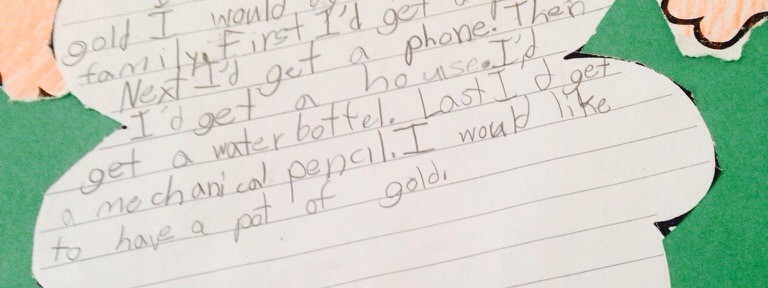 gold I would
family. First I'd get
Next I'd get a phone. Then
I'd get a house. I'd
get a water bottel. Last I'd get
a mechanical pencil. I would like
to have a pot of gold.